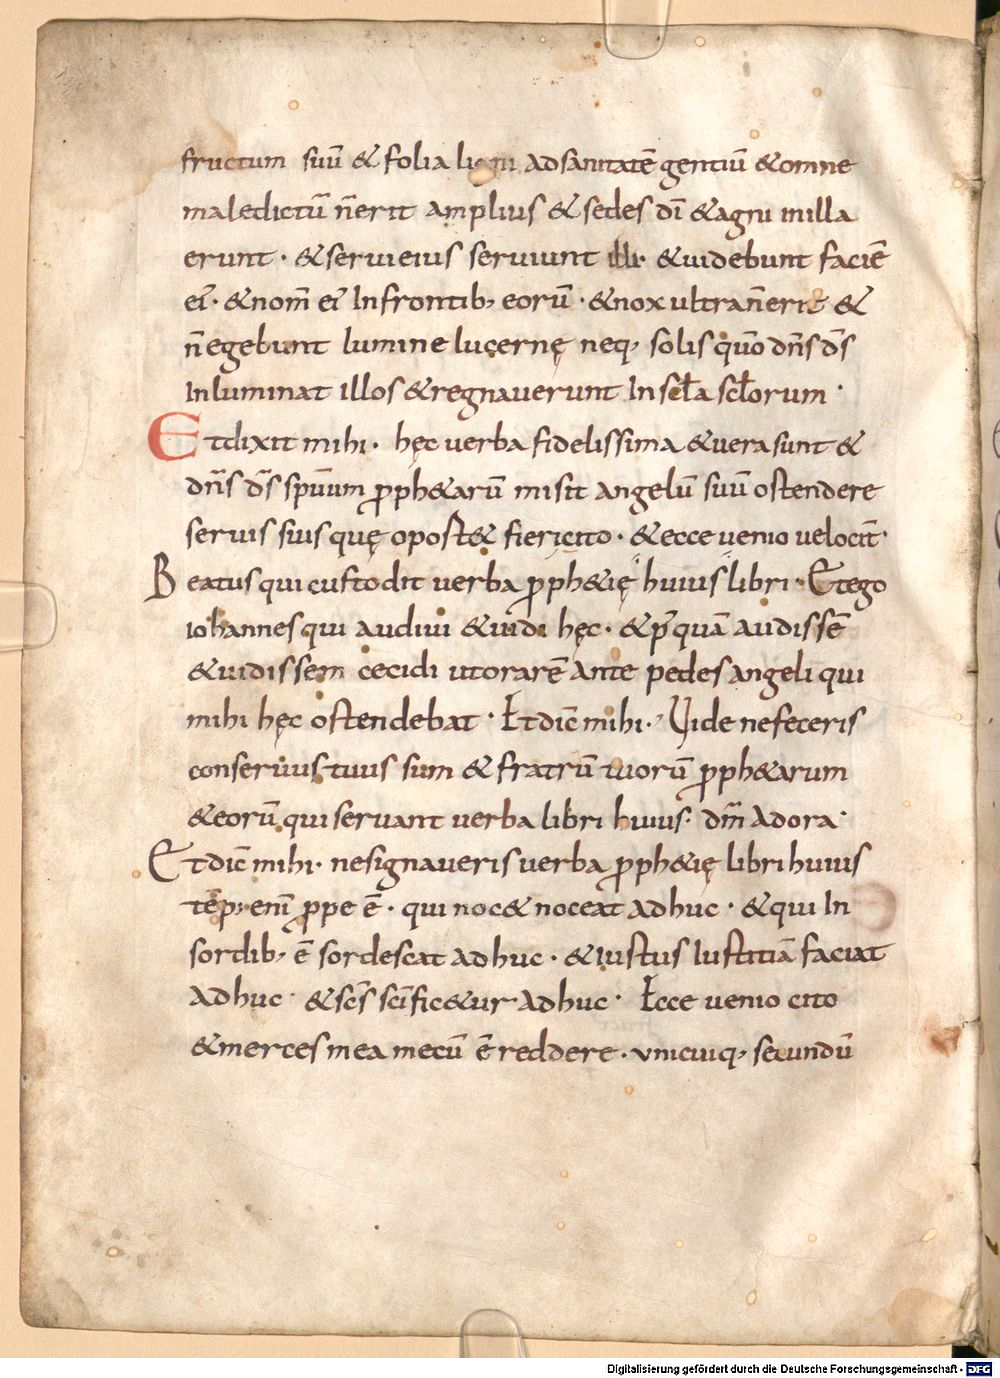 fructum suū & folia ligni adsanitatē gentiū &omne
maledictū n̄erit amplius & sedes dī &agni inilla
erunt · &servieius serviunt illi· &uidebunt faciē
ei᷒· &nom̄ ei᷒ Infrontib; eorū · &nox ultran̄erit &
n̄egebunt lumine lucernę neq; solis qūo dn̄s ds̄
Inluminat illos &regnaverunt Inscła scłorum ·
Etdixit mihi · hęc verba fidelissima &verasunt &
dn̄s ds̄ spūum ꝓph&arū misit angelū suū ostendere
servis suis quę oport& fiericito · &ecce uenio velocit̄·
Beatus qui custodit verba ꝓph&ię huius libri · Etego
iohannes qui audivi &uidi hęc · &p̄quā audissē
&uidissem cecidi utorarē ante pedes angeli qui
mihi hęc ostendebat · Etdic̄ mihi · Vide nefeceris
conseruus tuus sum & fratrū tuorū ꝓph&arum
&eorū qui servant verba libri huius · dm̄ adora·
Etdic̄ mihi · nesignaveris verba ꝓph&ię libri huius
tēp᷒ enī ꝓpe ē · qui noc& noceat adhuc · &qui In
sordib; ē sordescat adhuc · &iustus Iustitiā faciat
adhuc · &scs̄ scīfic&ur adhuc · Ecce uenio cito
&merces mea mecū ē reddere · vnicuiq; secundū
Digitalisierung gefördert durch die Deutsche Forschungsgemeinschaft - DFG